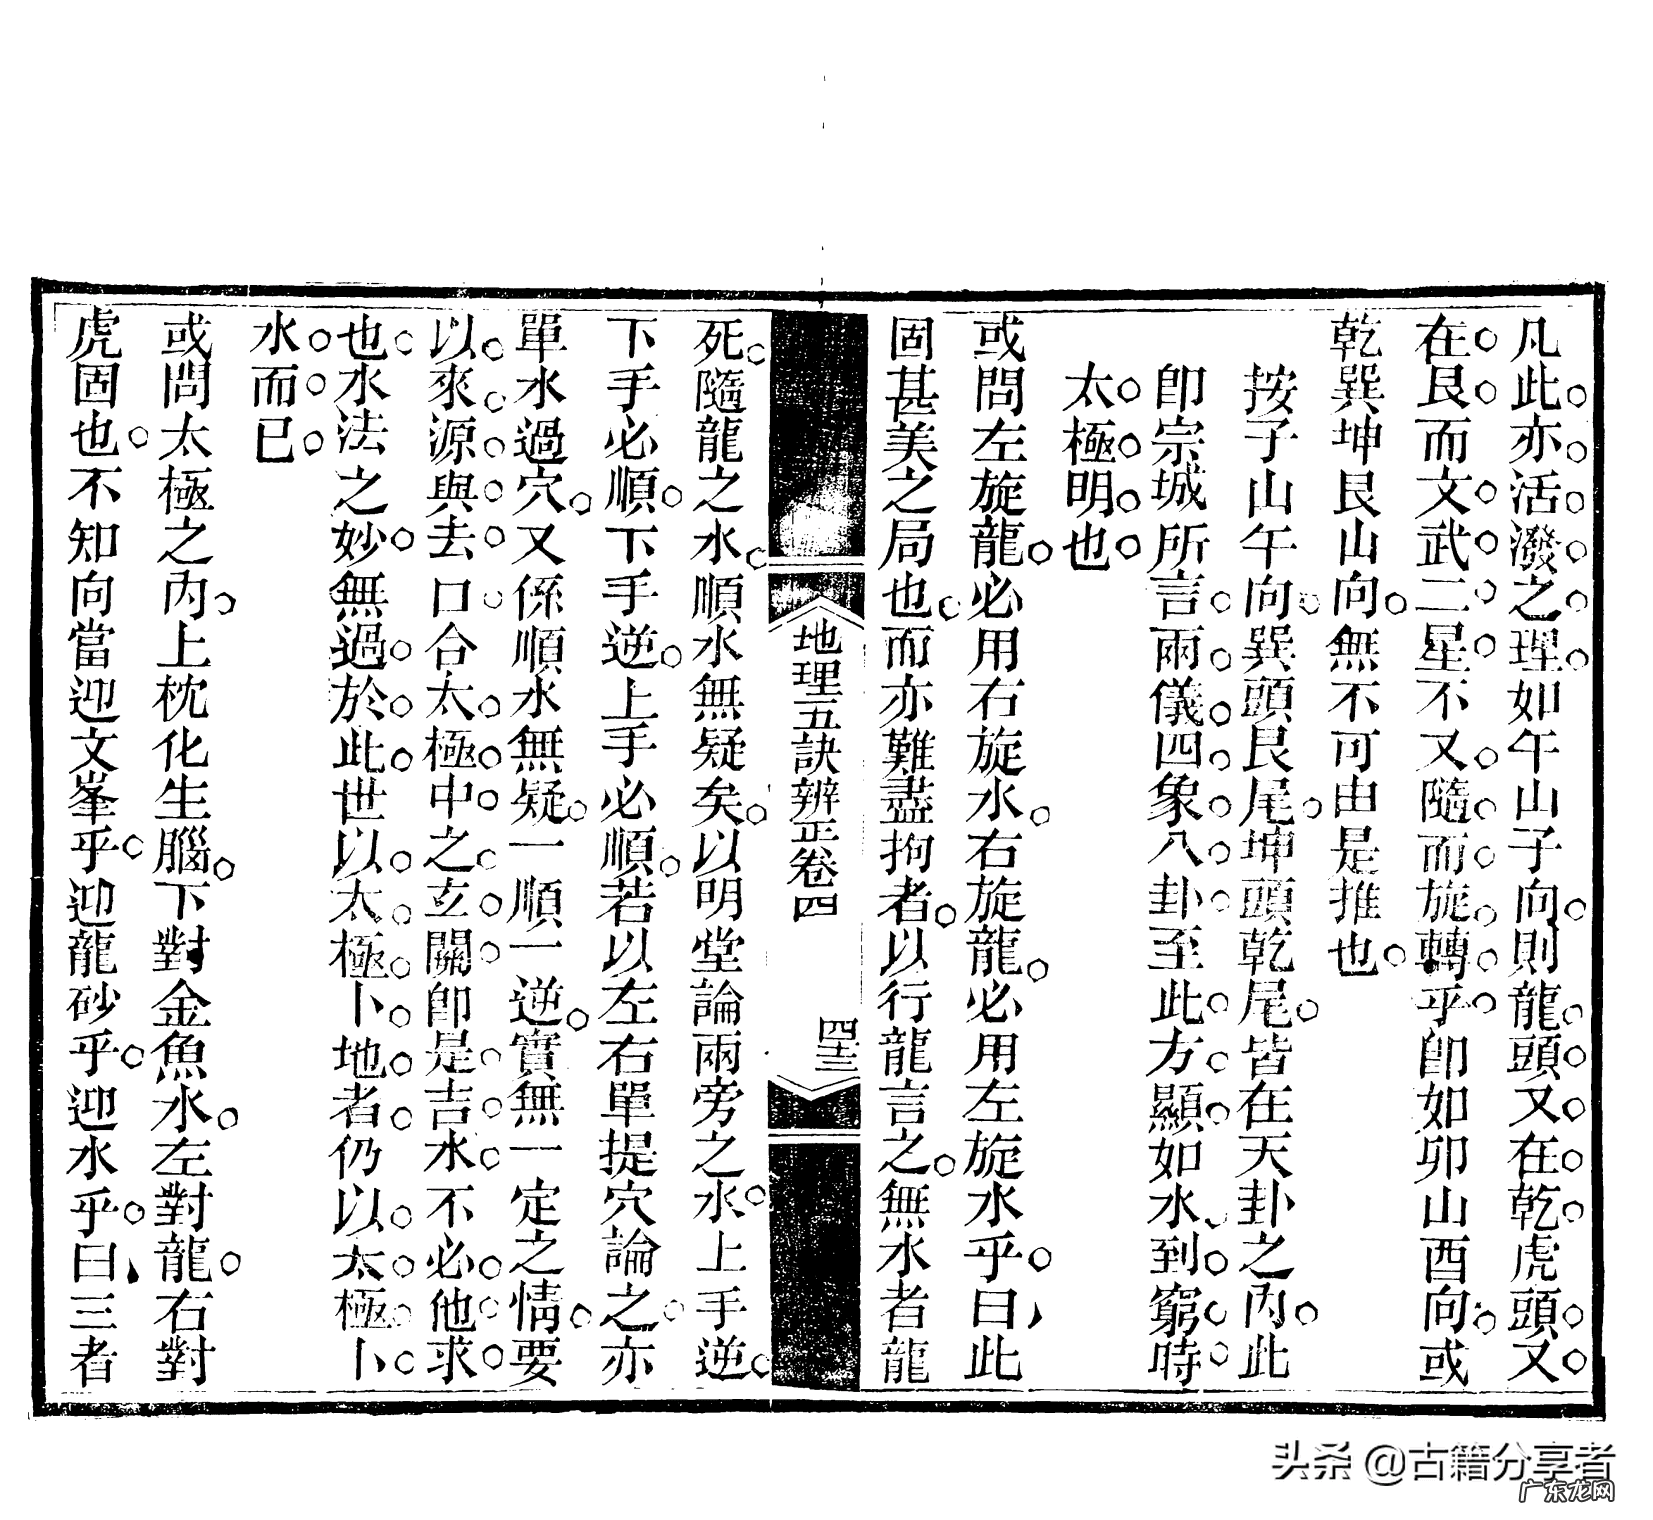 凡此亦活潑之理如午山子向則龍頭又在乾虎頭又
在艮而文武二星不又隨而旋轉乎卽如卯山酉向或
乾巽坤艮山向無不可由是推也
按子山午向巽頭艮尾坤頭乾尾皆在天卦之內此
卽宗城所言兩儀四象八卦至此方顯如水到窮時
太極明也
或問左旋龍必用右旋水右旋龍必用左旋水乎曰此
固甚美之局也而亦難盡拘者以行龍言之無水者龍
地理五訣辨正卷四
四三
死隨龍之水順水無疑矣以明堂論兩旁之水上手逆
下手必順下手逆上手必順若以左右單提穴論之亦
單水過穴又係順水無疑一順一逆實無一定之情要
以來源與去口合太極中之玄關卽是吉水不必他求
也水法之妙無過於此世以太極卜地者仍以太極卜
水而已
或問太極之內上枕化生腦下對金魚水左對龍右對
虎固也不知向當迎文峯乎迎龍砂乎迎水乎曰三者
头条 @古籍分享者
广东龙网